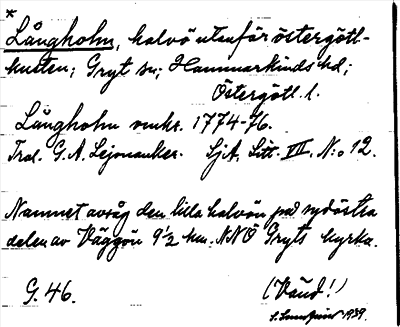 *
Långholm, halvö utanför östergötl-
kusten; Gryt sn; Hammarkinds hd;
Östergötl. l.
Långholm omkr. 1774-76.
Trol. G. A. Lejonanker. SjA, Litt. VIII, N:o 12.
Namnet avsåg den lilla halvön på sydöstra
delen av Väggön 9 1/2 km. NNÖ Gryts kyrka.
G. 46.
(Vänd!)
1939.